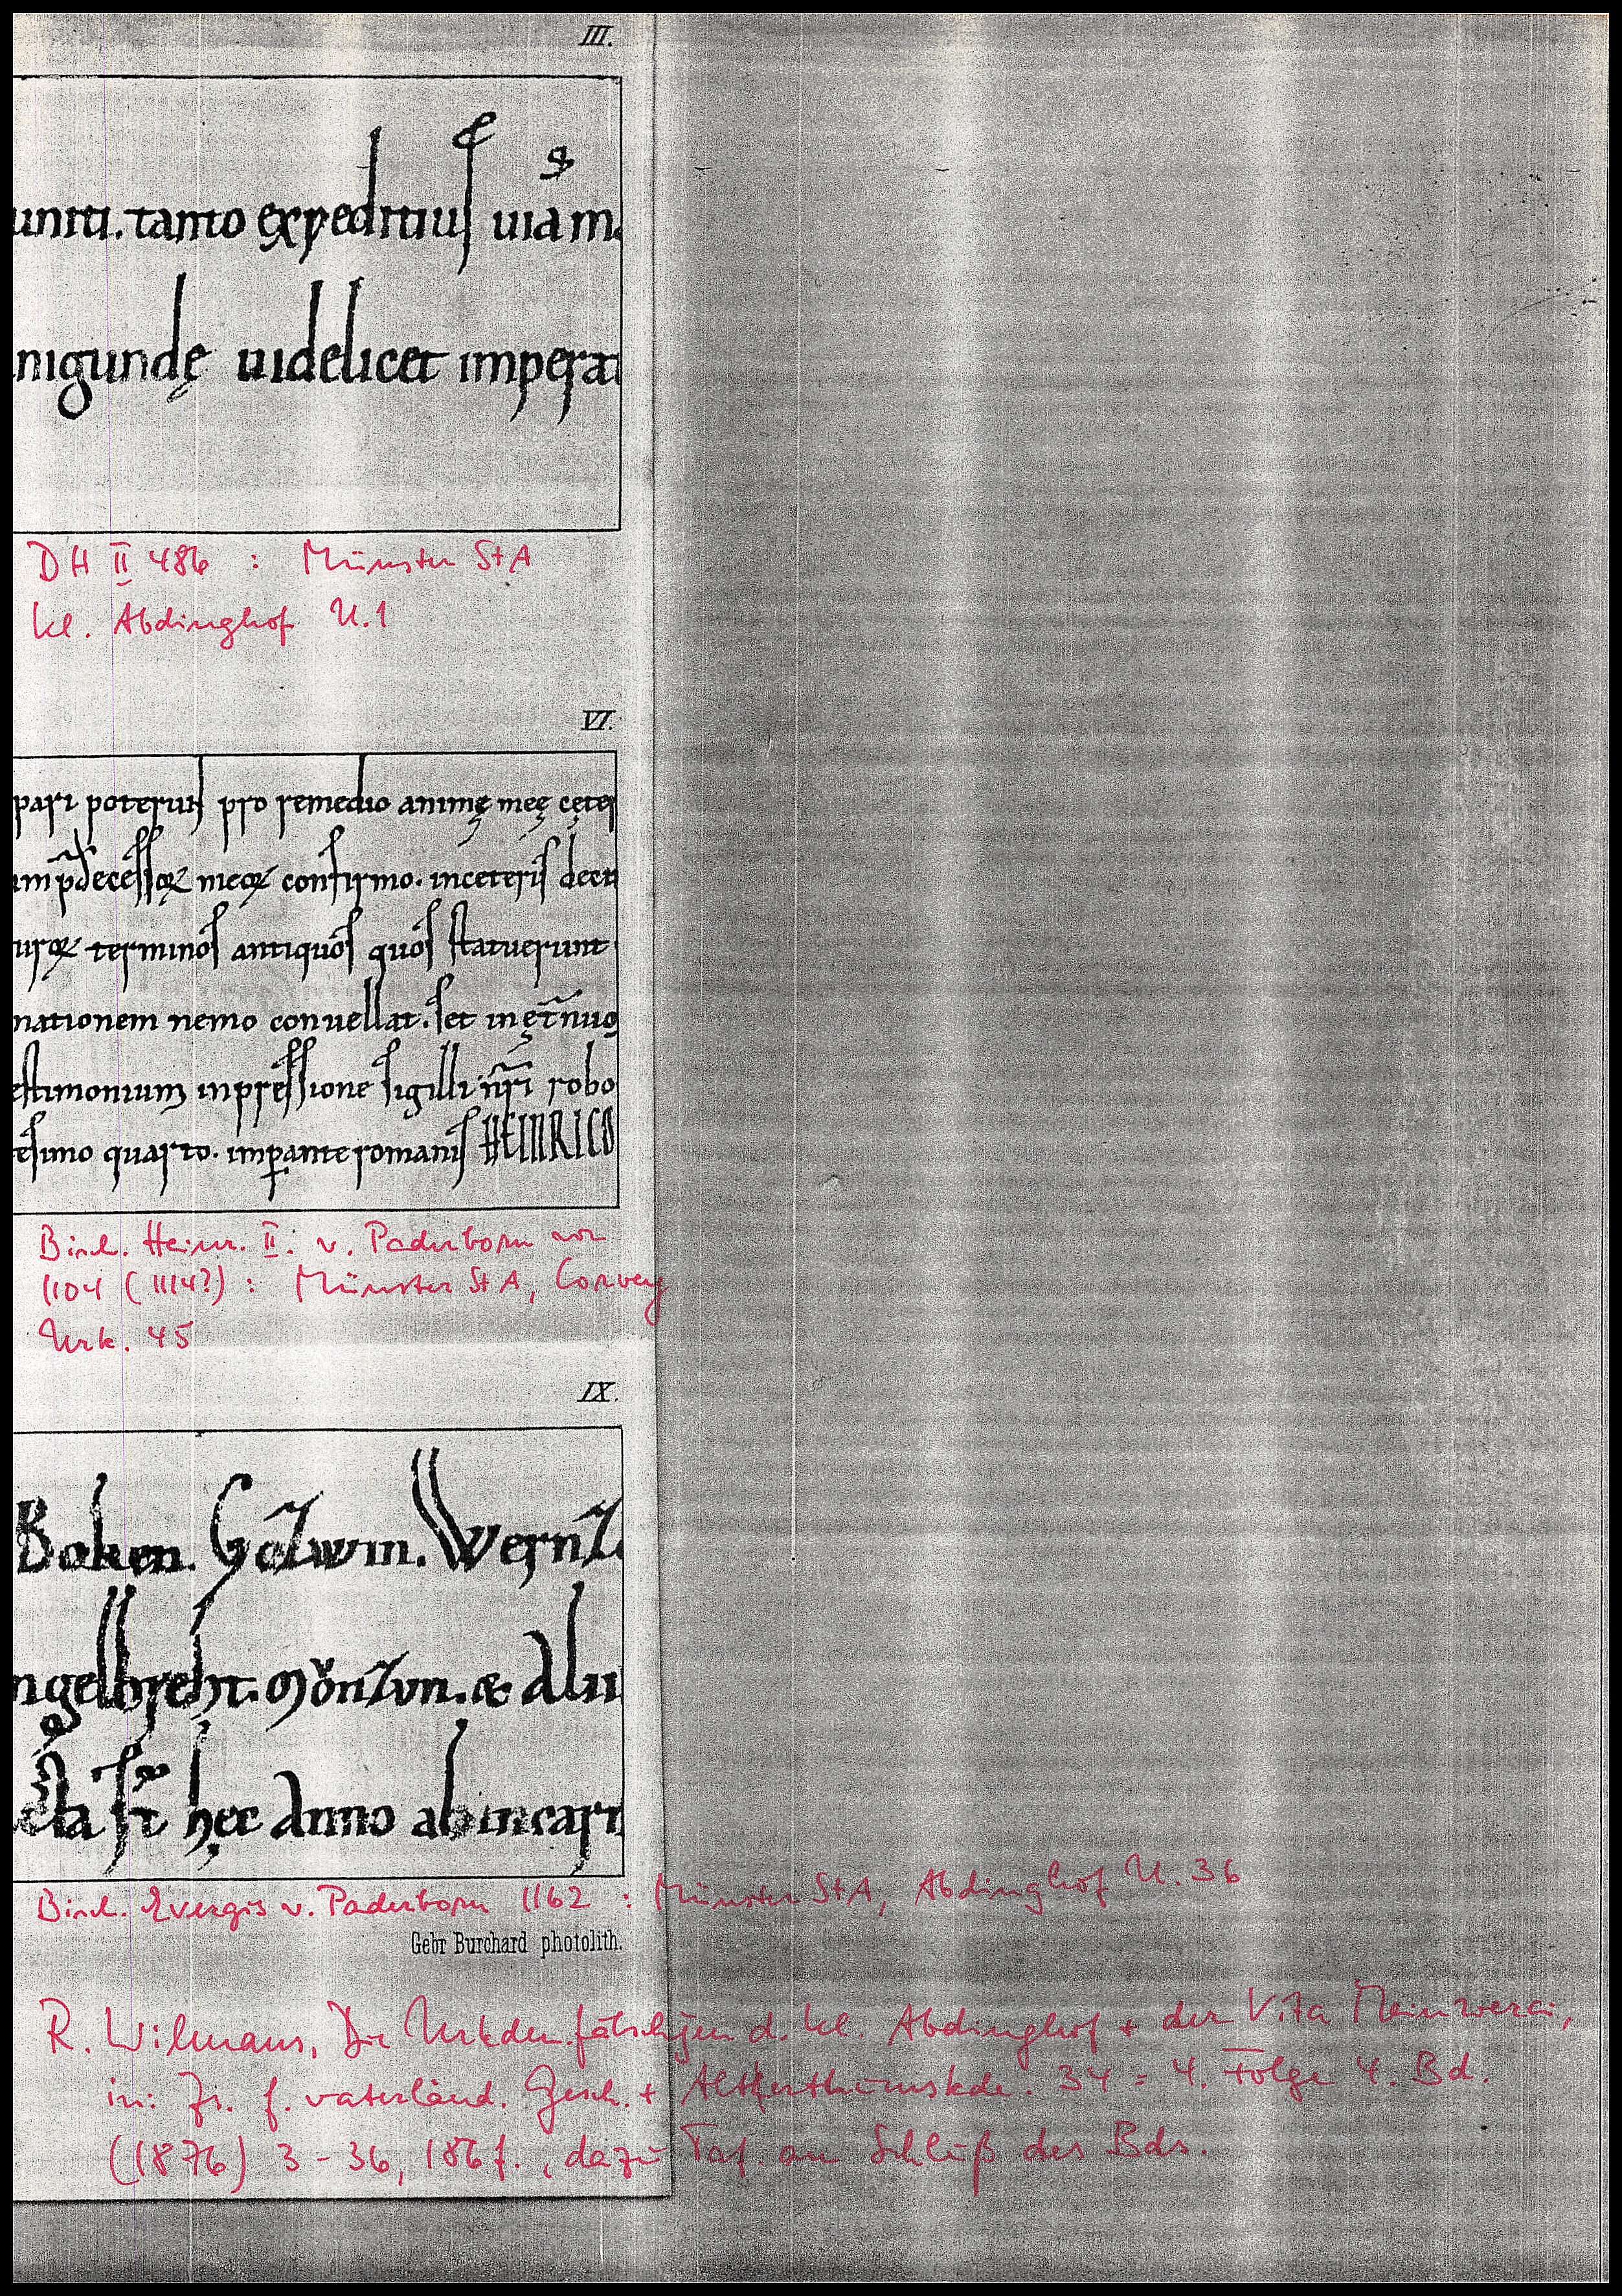 III.
uniti. tanto expeditius uiam
nigundę uidelicet imperat
DH II 486 : Münster StA
Kl. Abdinghof U.1
VI.
pari poterunt pro remedio animę meę cęter
meoꝝ confirmo. inceteris decr
terminos antiquos quos statuerunt
nationem nemo conuellat. set in
estimonium inpressione sigilli nr̄i robo
esimo quarto. imꝑante romanis HEINRICO
Bisch. Heinr. II. v. Paderborn von
1104 (1114?) : Münster StA, Corvey
Urk. 45
IX.
Boken.
ngelbreht. & Alu
hęc Anno abincarn
Bisch. Evergis v. Paderborn 1162 : Münster StA, Abdinghof U. 36
Gebr Burchard photolith.
R. Wilmans, Die Urkdenfälschgen d. Kl. Abdinghof + der Vita Meinwerci,
in: Zs. f. vaterländ. Gesch. + Alterthumskde. 34 = 4. Folge 4. Bd.
(1876) 3 - 36, 186f., dazu Taf. am Schluß des Bds.